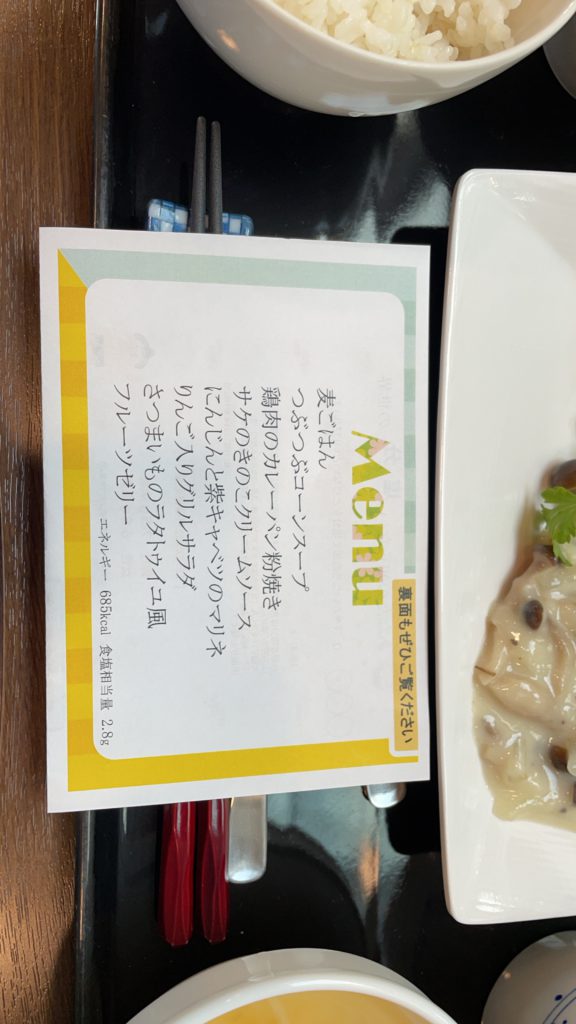 裏面もぜひご覧ください
Menu
麦ごはん
つぶつぶコーンスープ
鶏肉のカレーパン粉焼き
サケのきのこクリームソース
にんじんと紫キャベツのマリネ
りんご入りグリルサラダ
さつまいものラタトゥイユ風
フルーツゼリー
エネルギー 685kcal 食塩相当量 2.8g